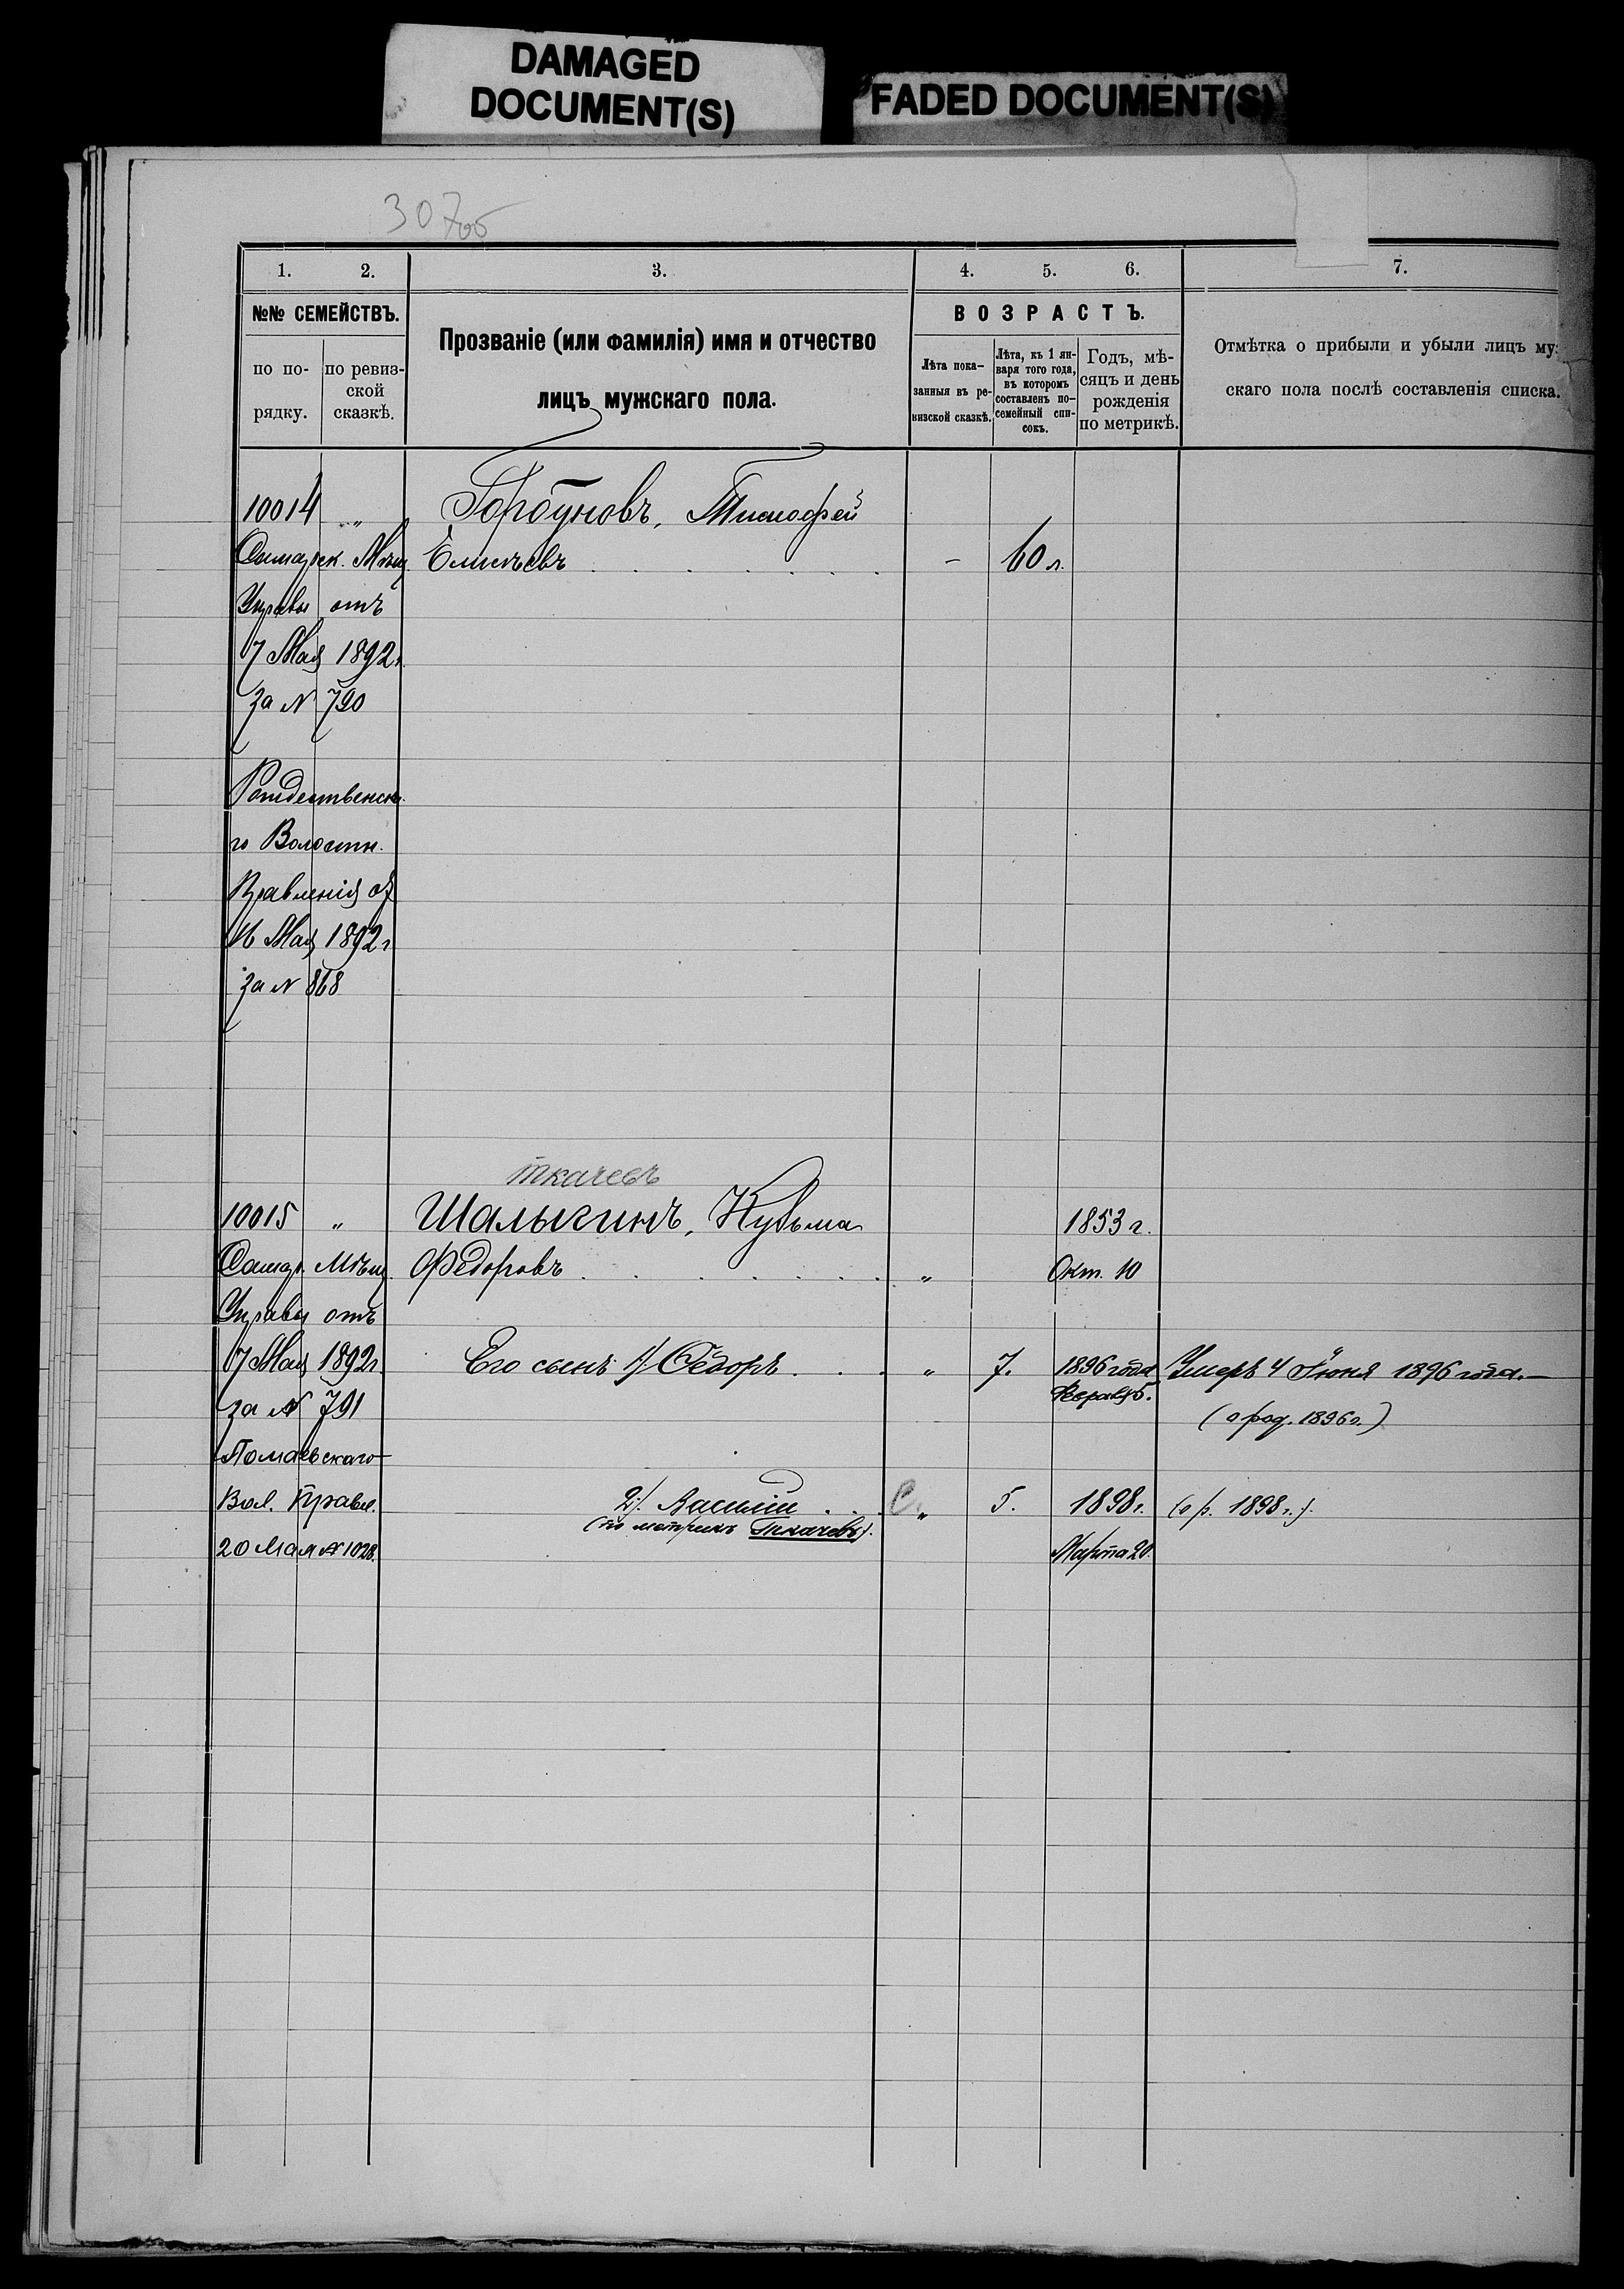 DAMAGED
DOCUMENT(S)
FADED DOCUMENT(S)
307об
1. 2. 3. 4. 5. 6. 7.
№№ СЕМЕЙСТВЪ.
по по-
рядку.
по ревиз-
ской
сказкѣ.
Прозваніе (или фамилія) имя и отчество
лицъ мужскаго пола.
ВОЗРАСТЪ.
Лѣта пока-
занныя въ ре-
визской сказкѣ.
Лѣта, къ 1 ян-
варя того года,
въ которомъ
составленъ по-
семейный спи-
сокъ.
Годъ, мѣ-
сяцъ и день
рожденія
по метрикѣ.
Отмѣтка о прибыли и убыли лицъ му
скаго пола послѣ составленія списка.
10014 „ Горбуновъ, Тимофей
Самарск. Мѣщ. Емельевъ - 60 л.
Управы отъ
7 Мая 1892 г.
за N 790
Рождественска
го Волостн.
Правленія от
16 Мая 1892 г
за N 868
Ткачевъ
10015 „ Шалыгинъ, Кузьма 1853 г.
Самар. Мѣщ. Ѳедоровъ „ Окт. 10
Управы отъ
7 Мая 1892 г. Его сынъ 1/ Ѳедоръ „ 7. 1896 года Умеръ 4 Іюня 1896 года.—
за N 791 Февраля 5. (о род. 1896 г.)
Вол. Правл. 2/. Василій С „ 5. 1898 г. (о р. 1898 г.).
(по метрикѣ Ткачевъ).
20 Мая N 1028. Марта 20.